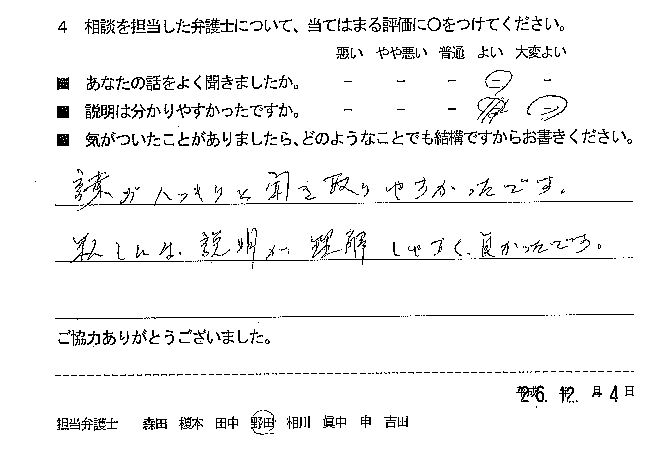 4 相談を担当した弁護士について、当てはまる評価に○をつけてください。
悪い やや悪い 普通 よい 大変よい
■ あなたの話をよく聞きましたか。 － － － － －
■ 説明は分かりやすかったですか。 － － － － －
■ 気がついたことがありましたら、どのようなことでも結構ですからお書きください。
言葉がハッキリと聞き取りやすかったです。
私しには、説明が理解しやすく、良かったです。
ご協力ありがとうございました。
平成 26. 12. 月 4日
担当弁護士 森田 榎本 田中 野田 相川 眞中 申 吉田